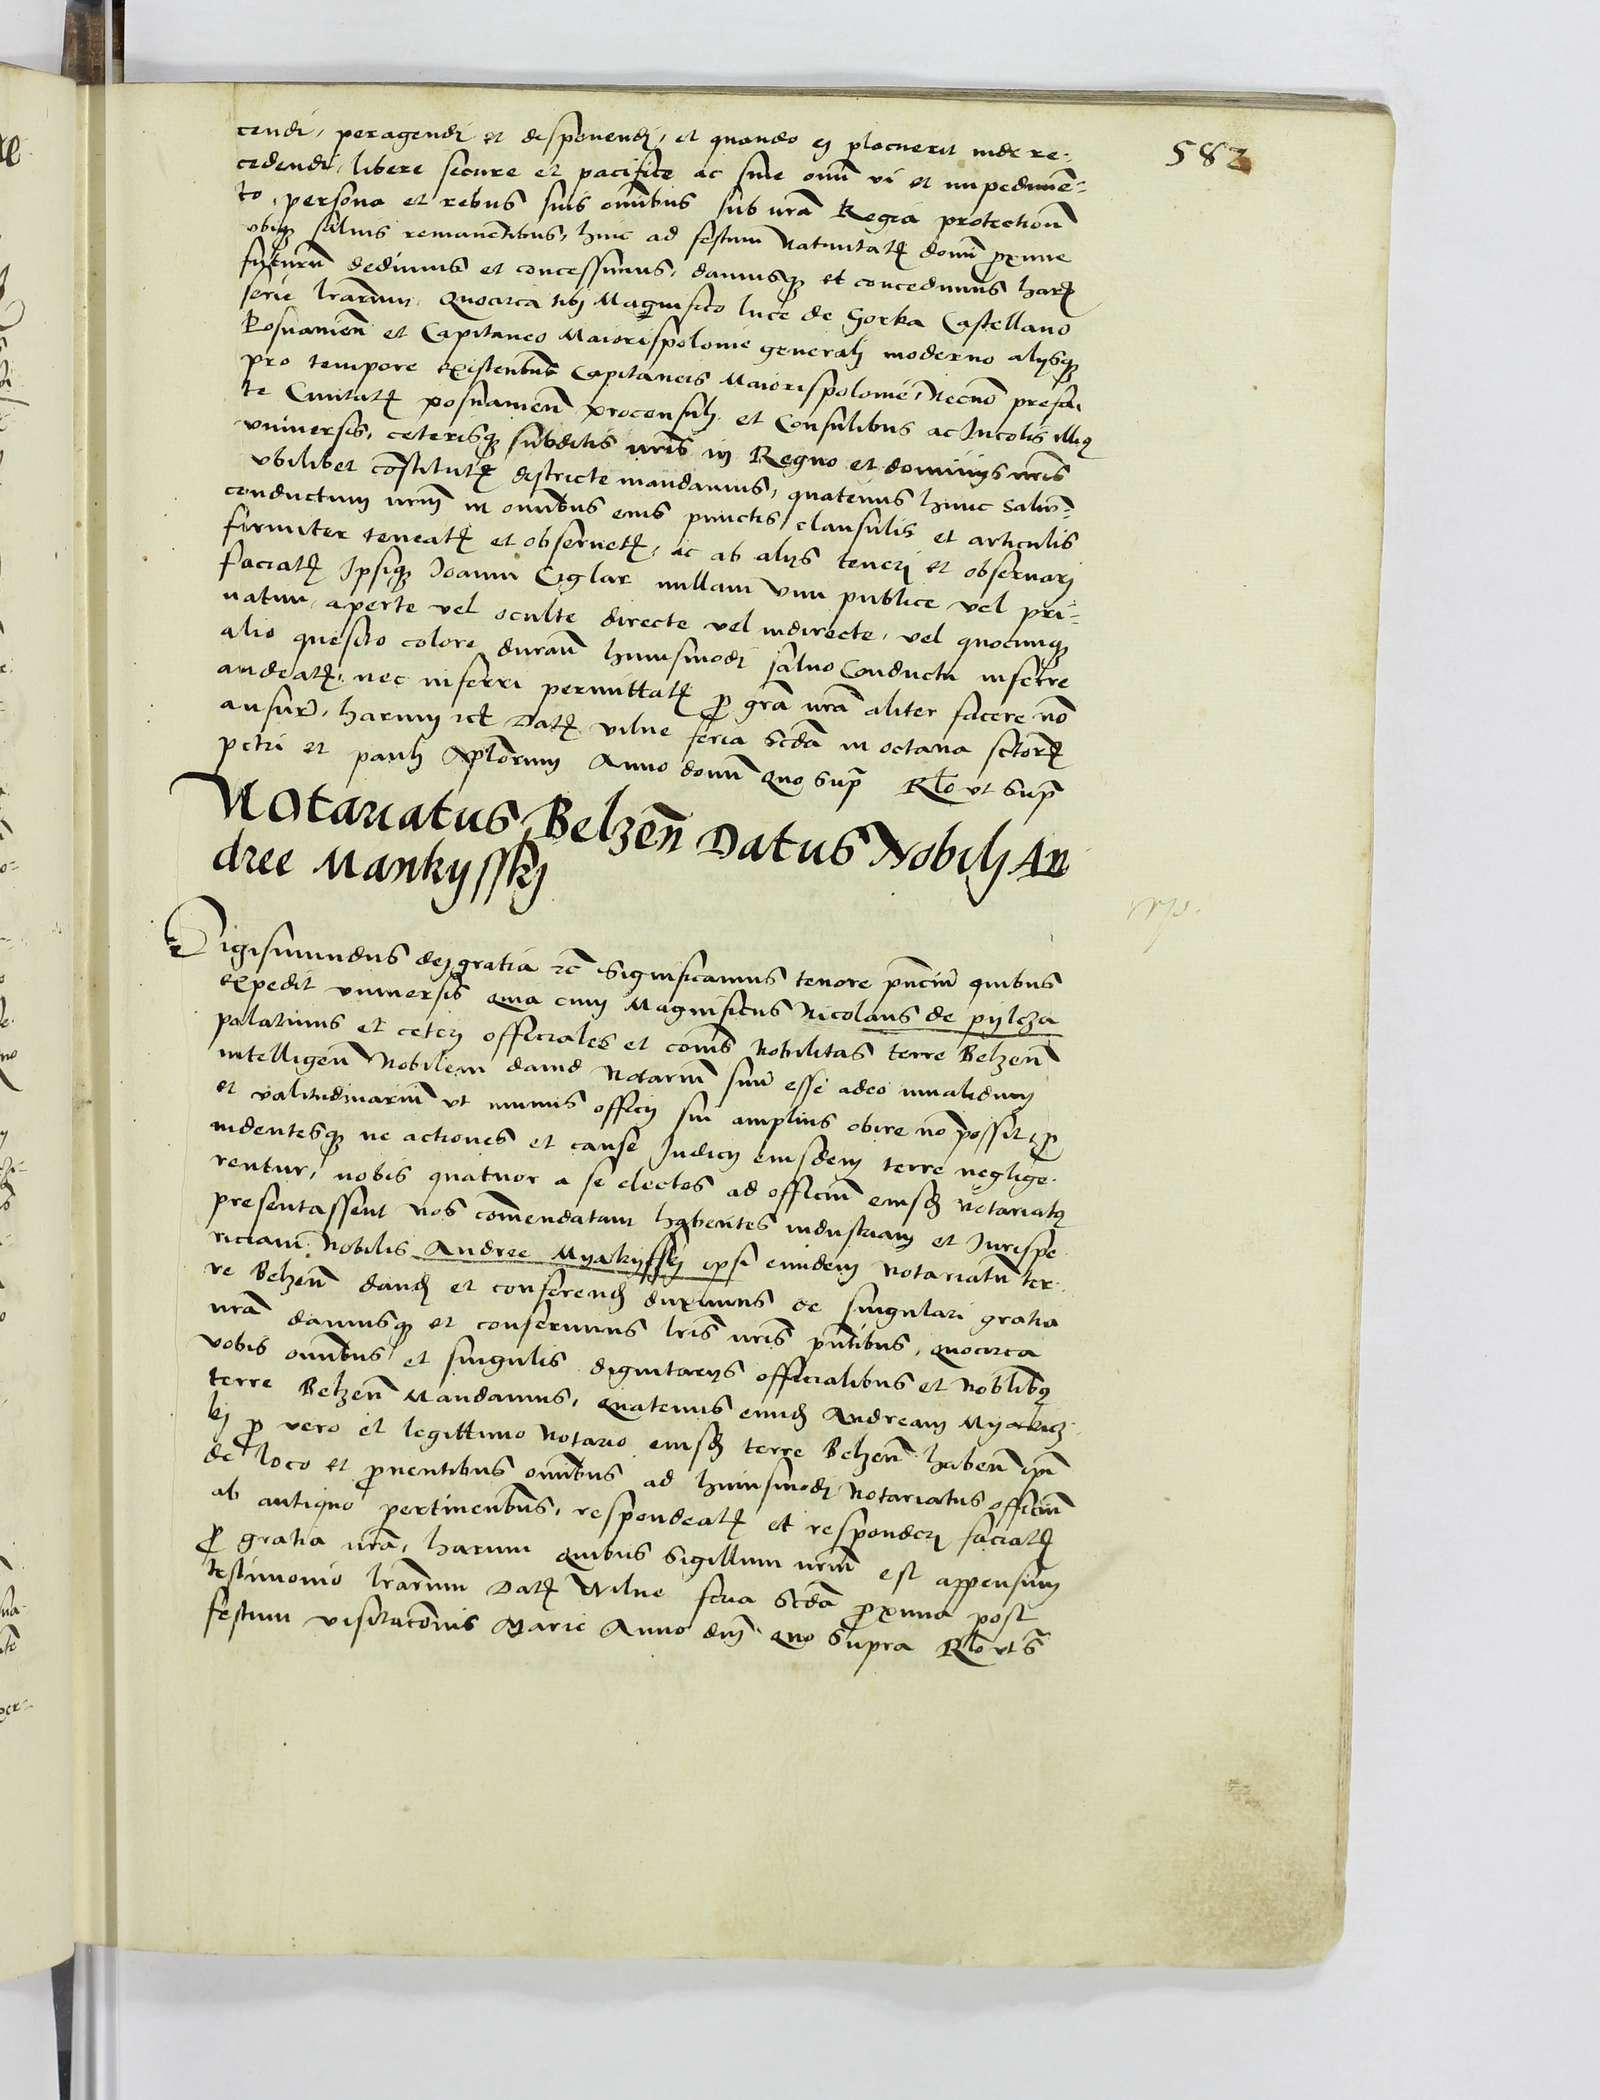 582
cendi, peragendi et desponendi, et quando ei placuerit inde re-
cedendi, libere secure et pacifice ac sine omi vi et impedimē-
to, persona et rebus suis omibus sub nrā Regia protectioñ
vbiqȝ salvis remanētibus, hinc ad festum Natiuitatꝭ domi proxime
futurū dedimus et concessimus, damusqȝ et concedimus harꝝ
serie lrarum. Quocirca tibi Magnifico luce de Gorka Castellano
Posnanieñ et Capitaneo Maiorispolonie generali moderno alijsqȝ
pro tempore existentibus Capitaneis Maiorispolonie, Necnō prefa-
te Ciuitatꝭ posnanieñ proconsuli et Consulibus ac Incolis illiꝰ
vniuersis, ceterisqȝ subditis nrīs in Regno et dominijs nrīs
vbilibet cōstitutꝭ districte mandamus, quatenus hunc saluū-
conductum nrm̄ in omibus eius punctis clausulis et articulis
firmiter teneatꝭ et obseruetꝭ, ac ab alijs teneri et obseruari
faciatꝭ Ipsiqȝ Joanni Ciglar nullam vim publice vel pri-
uatim, aperte vel oculte directe vel indirecte, vel quocunqȝ
alio quesito colore durañ huiusmodi saluo Conductu inferre
audeatꝭ, nec inferri permittatꝭ ꝓ grā nrā aliter facere nō
ausurī, harum rct Datꝭ Vilne feria scđa in octaua sctorꝝ
petri et pauli Apłorum Anno domī quo supͣ Rło vt supͣ
Notariatus Belzeñ Datus Nobili An
dree Mankyssky
Sigismundus dei gratia rc̄ Significamus tenore pn̄ciū quibus
expedit vniuersis Quia cum Magnificus Nicolaus de pyleza
palatinus et ceteri officiales et cōmis Nobilitas terre Belzeñ
intelligeñ Nobilem dauid Notariū suū esse adeo inualidum
et valitudinariū vt munus officij sui amplius obire nō possit, ꝓ
uidentesqȝ ne actiones et cause Iudicij eiusdem terre neglige-
rentur, nobis quatuor a se electos ad officiū eiusđ Notariatꝰ
presentassent Nos cōmendatam habentes industriam et Iurispe-
riciam Nobilis Andree Myakyssky ipsi eundem Notariatū ter-
re Belzeñ dandꝭ et conferendꝭ duximus de singulari gratia
nrā damusqȝ et conferimus lrīs nrīs pn̄tibus, Quocirca
vobis omibus et singulis dignitarijs officialibus et Noblibꝰ
terre Belzeñ Mandamus, Quatenus eundꝭ Andream Myakisz-
ki ꝓ vero et legittimo Notario eiusđ terre Belzeñ habeñ ipī
de loco et ꝓuentibus omibus ad huiusmodi Notariatus officiū
ab antiquo pertinentibus, respondeatꝭ et responderi faciatꝭ
ꝓ gratia nrā, harum quibus Sigillum nrm̄ est appensum
testimonio lrarum Datꝭ Wilne feria scđa ꝓxima post
festum visitacōnis Marie Anno dnī quo supra Rło vt sͣ